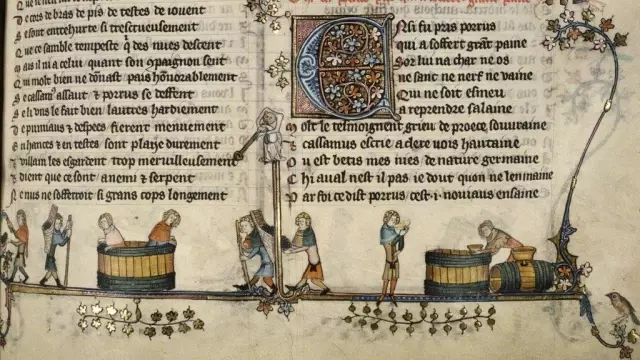 D e cors de bras de pis de testes de iouent
S i sont entehurte si tresctueusement
Q ue ce samble tempeste q̃ des nues descent
M ais il ni a celui quant son 9paignon sent
Q ui molt bien ne donnast pais honorablement
S e cassam9 assaut & porrus se deffent
S e li uns le fait bien lautres hardiement
D e pumiaus & despees fierent menuement
E n hances & en testes sont plaije durement
L i uillain les esgardent trop merueilleusement
E t dient que ce sont anemi & serpent
N e nus ne soffterroit si grans cops longement
E Nsi fu pras porrus
qui a soffert grãt paine
Sor lui na char ne os
ne sanc ne nerf ne uaine
Qui ne soit esmeu
a reprendre salaine
M olt le tesmoignent grieu de proece souuraine
C assamus escrie a dere uois hautaine
O u est betis mes nies de nature germaine
C hi aual nest il pas ie dout quon ne len maine
P ar foi ce dist porrus cest i nouiaus ensaine